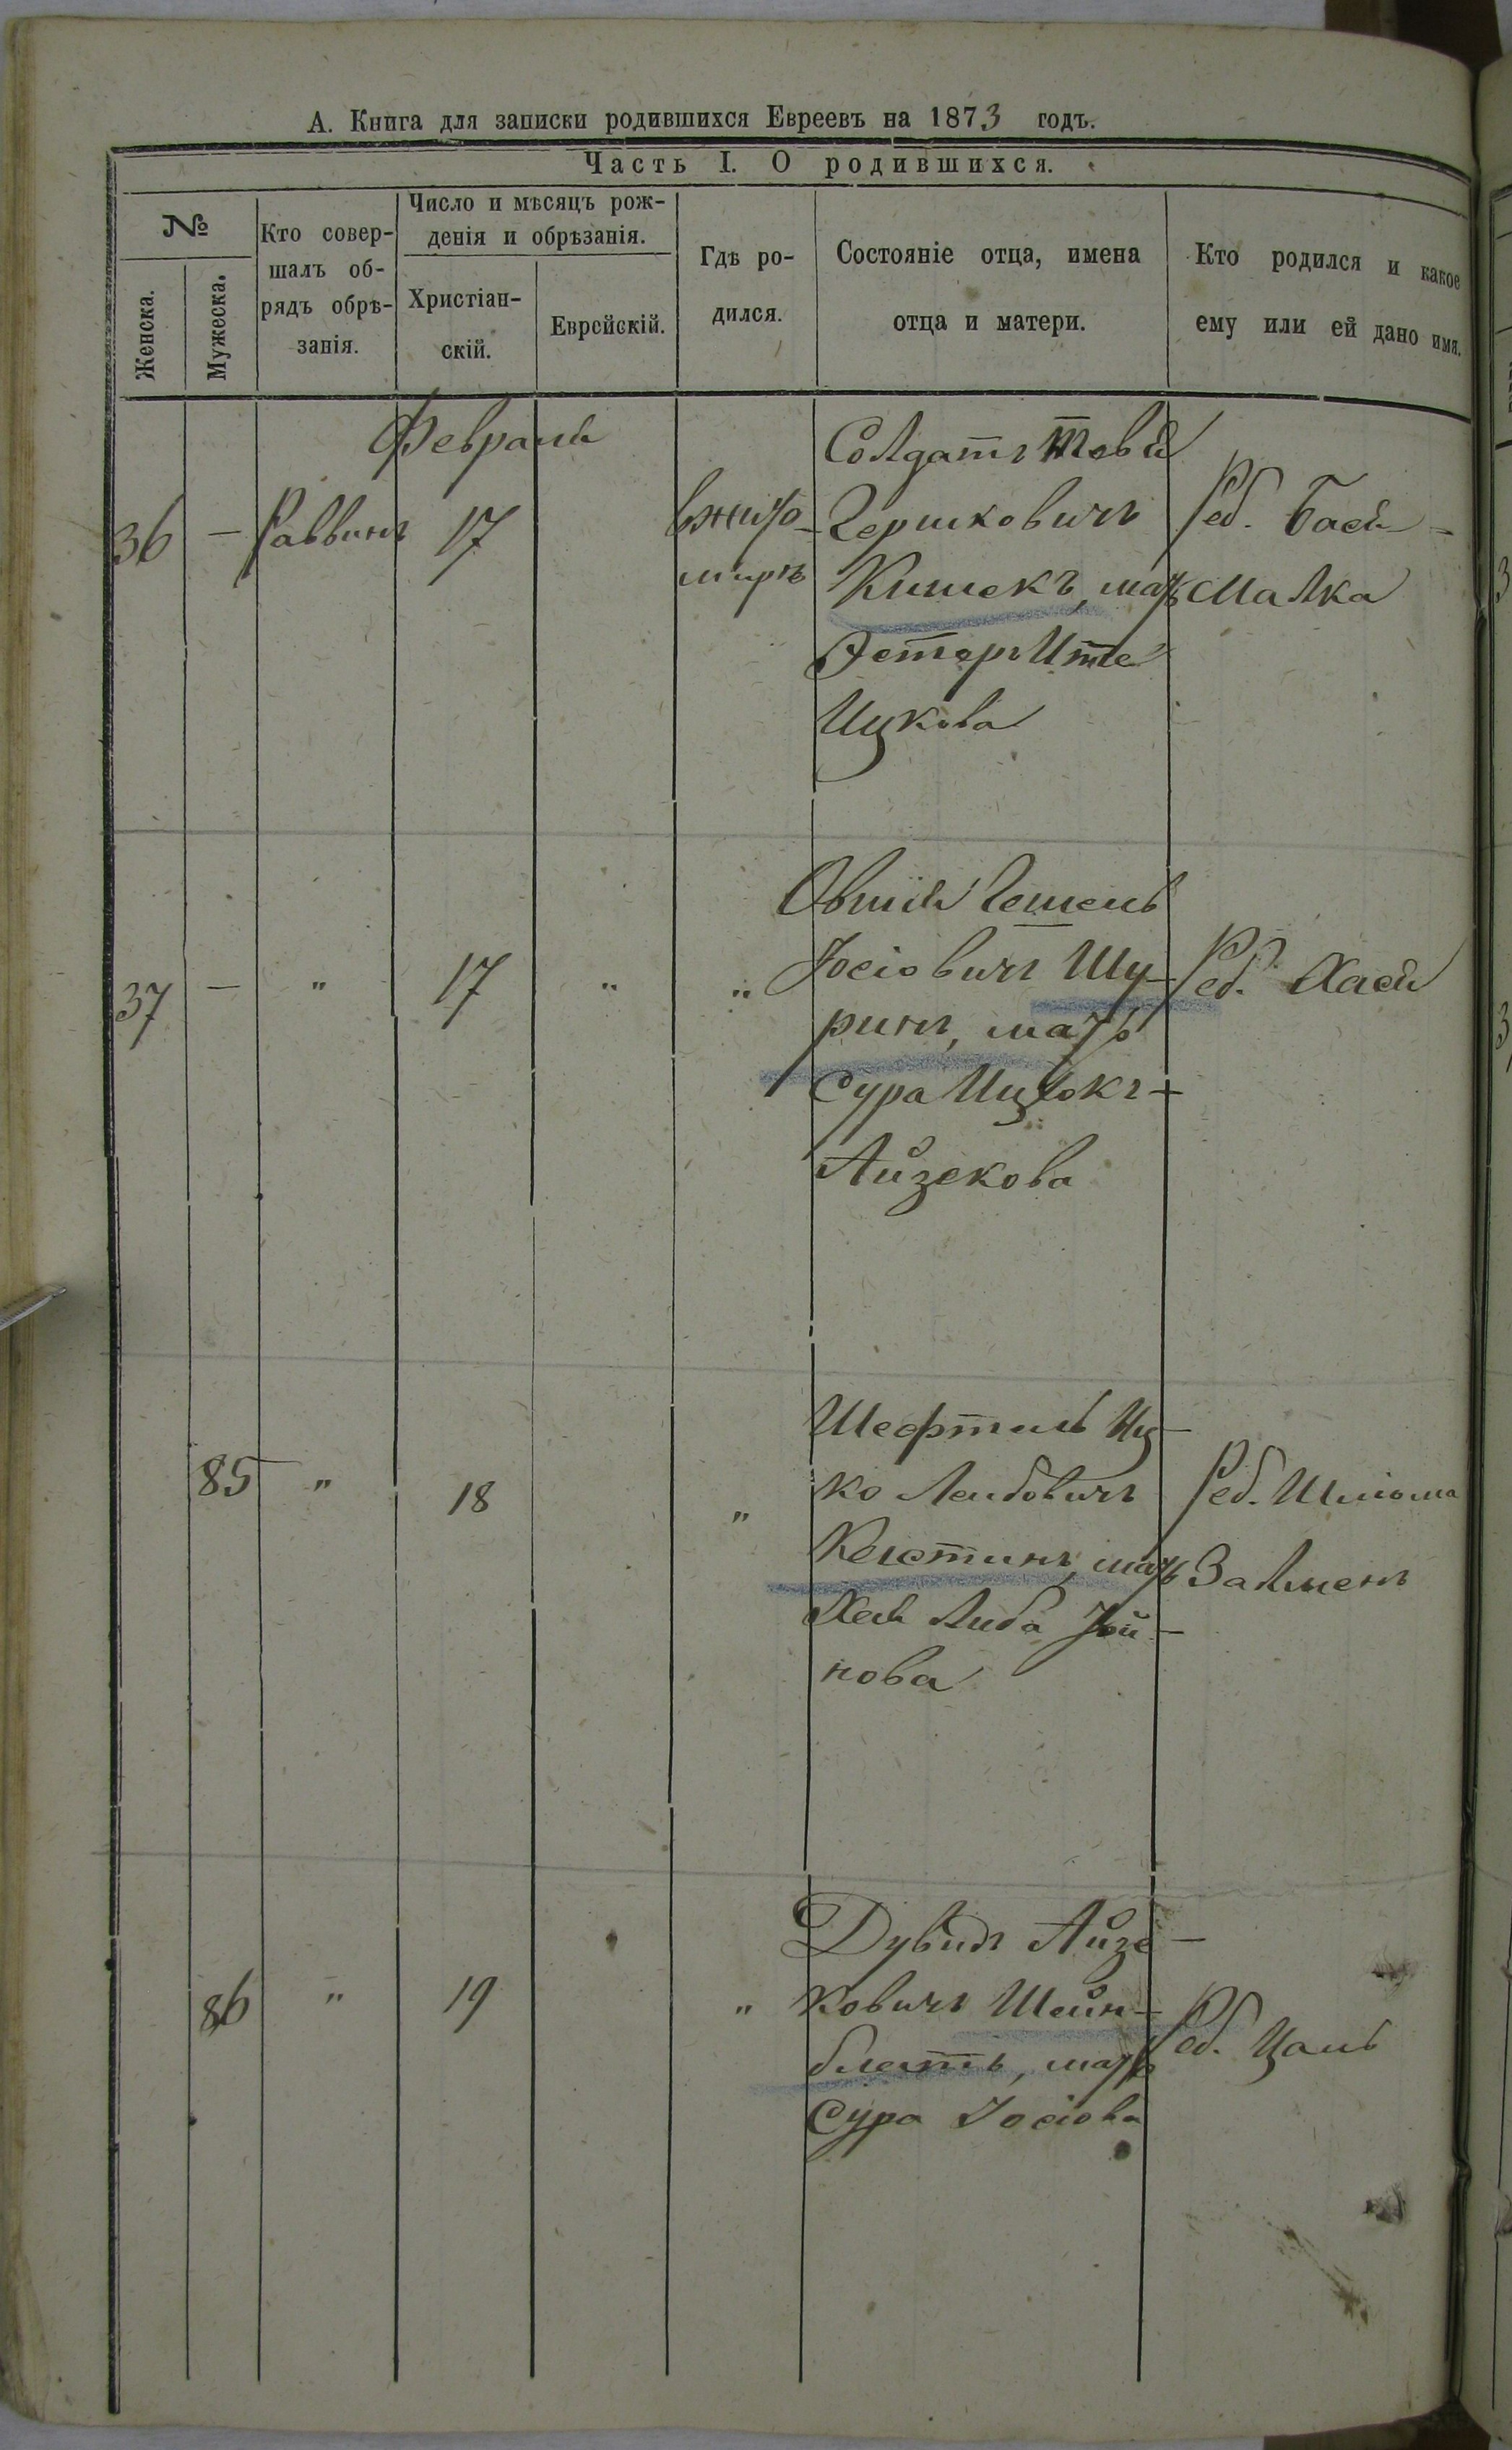 А. Книга для записки родившихся Евреевъ на 1873 годъ.
Часть I. О родившихся.
№
Женска.
Мужеска.
Кто совер-
шалъ об-
рядъ обрѣ-
занія.
Число и мѣсяцъ рож-
денія и обрѣзанія.
Христіан-
скій.
Еврейскій.
Гдѣ ро-
дился.
Состояніе отца, имена
отца и матери.
Кто родился и какое
ему или ей дано имя.
Февраля
36 — Раввинъ 17
вжито-
мирѣ
Солдатъ Тевья
Гершковичъ
Кишекъ, мать
Эстеръ Итта
Ицкова
Реб. Бася-
Малка
37 — " 17 " "
Овшія
Іосіовичъ Шу-
ринъ, мать
Сура Ицкокъ
Айзекова
Реб. Хася
85 " 18 "
Шефтиль Иц-
ко Лейбовичъ
мать
Хая Либа Іой-
нова
Реб. Шліома
Залменъ
86 " 19 "
Дувидъ Айзе-
ковичъ Шейн-
блатъ, мать
Сура Іосіова
Реб. Цаль